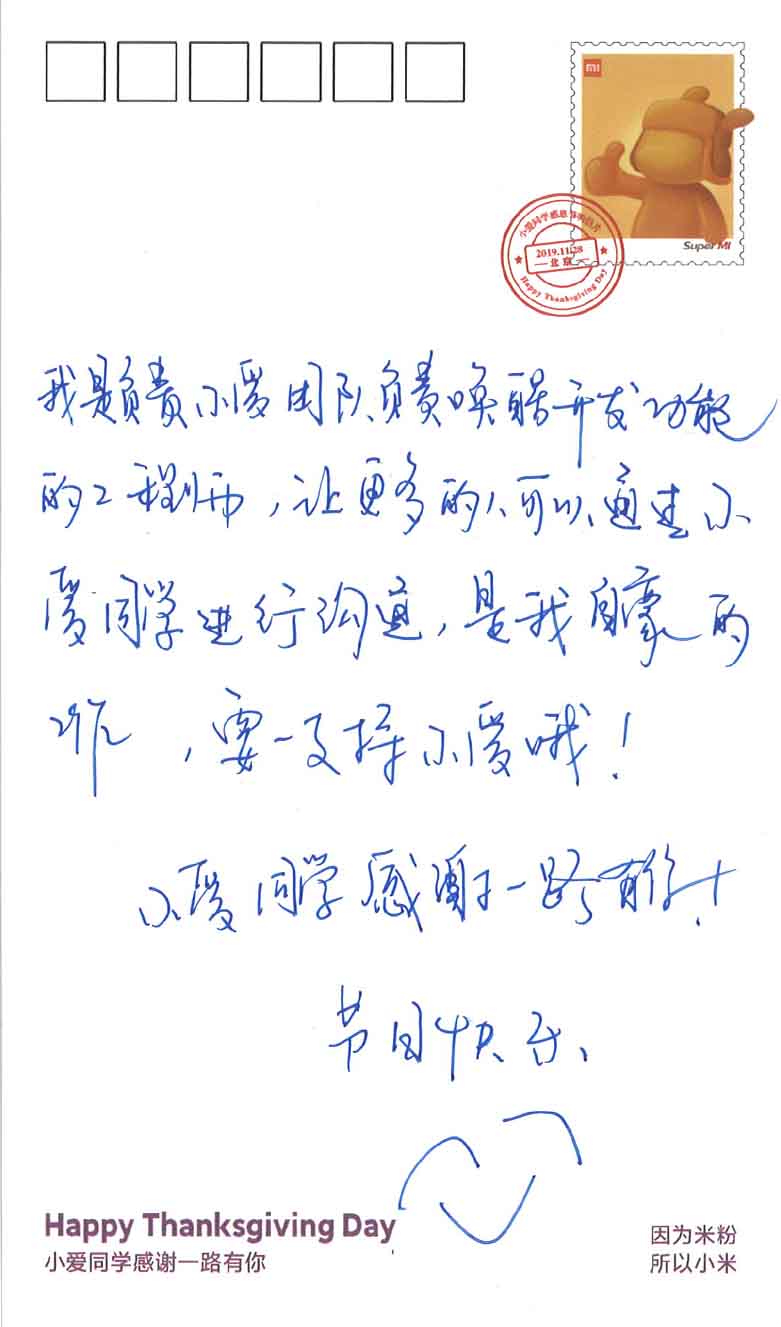 mi
Super MI
小爱同学感恩节明信片
2019.11.28
北京
Happy Thanksgiving Day
我是负责小爱团队负责唤醒开发功能
的工程师，让更多的人可以通过小
爱同学进行沟通，是我自豪的
工作，要一支持小爱哦！
小爱同学感谢一路有你！
节日快乐、
Happy Thanksgiving Day
小爱同学感谢一路有你
因为米粉
所以小米